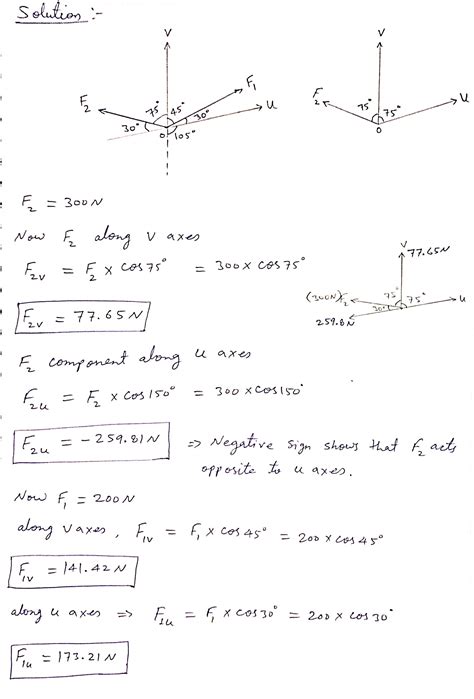 Solution :-
V
F₁
F₂
75°
45°
30°
u
30°
O
105°
V
F₂
75°
75°
u
O
F₂ = 300N
Now F₂ along V axes
F₂ᵥ = F₂ × cos 75° = 300 × cos 75°
F₂ᵥ = 77.65 N
V
77.65N
(300N) F₂
75°
75°
30°
u
259.8N
F₂ component along u axes
F₂ᵤ = F₂ × cos 150° = 300 × cos 150°
F₂ᵤ = -259.81N ⇒ Negative sign shows that F₂ acts
opposite to u axes.
Now F₁ = 200N
along V axes, F₁ᵥ = F₁ × cos 45° = 200 × cos 45°
F₁ᵥ = 141.42 N
along u axes ⇒ F₁ᵤ = F₁ × cos 30° = 200 × cos 30°
F₁ᵤ = 173.21 N